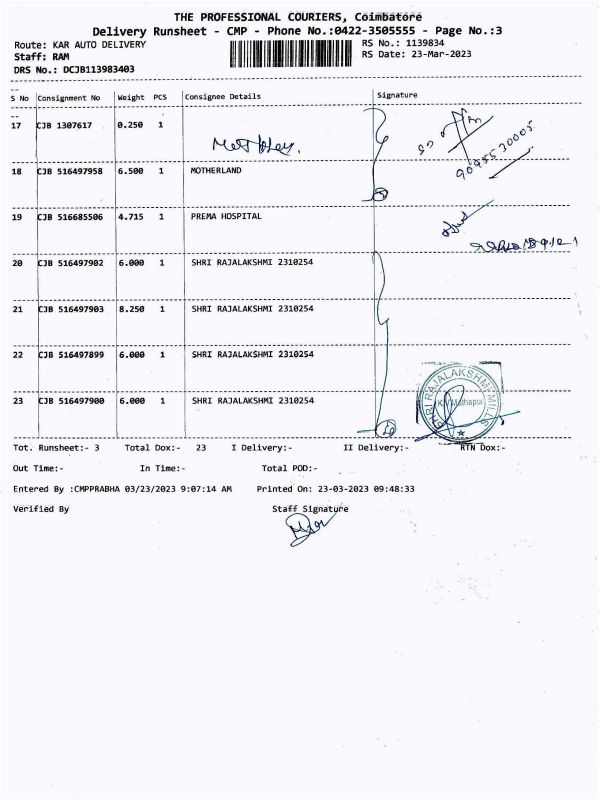 THE PROFESSIONAL COURIERS, Coimbatore
Delivery Runsheet - CMP - Phone No.:0422-3505555 - Page No.:3
Route: KAR AUTO DELIVERY RS No.: 1139834
Staff: RAM RS Date: 23-Mar-2023
DRS No.: DCJB113983403
S No Consignment No Weight PCS Consignee Details Signature
17 CJB 1307617 0.250 1
9095530005
18 CJB 516497958 6.500 1 MOTHERLAND
19 CJB 516685506 4.715 1 PREMA HOSPITAL
20 CJB 516497902 6.000 1 SHRI RAJALAKSHMI 2310254
21 CJB 516497903 8.250 1 SHRI RAJALAKSHMI 2310254
22 CJB 516497899 6.000 1 SHRI RAJALAKSHMI 2310254
23 CJB 516497900 6.000 1 SHRI RAJALAKSHMI 2310254
SHRI RAJALAKSHMI MILLS
Tot. Runsheet:- 3 Total Dox:- 23 I Delivery:- II Delivery:- RTN Dox:-
Out Time:- In Time:- Total POD:-
Entered By :CMPPRABHA 03/23/2023 9:07:14 AM Printed On: 23-03-2023 09:48:33
Verified By Staff Signature